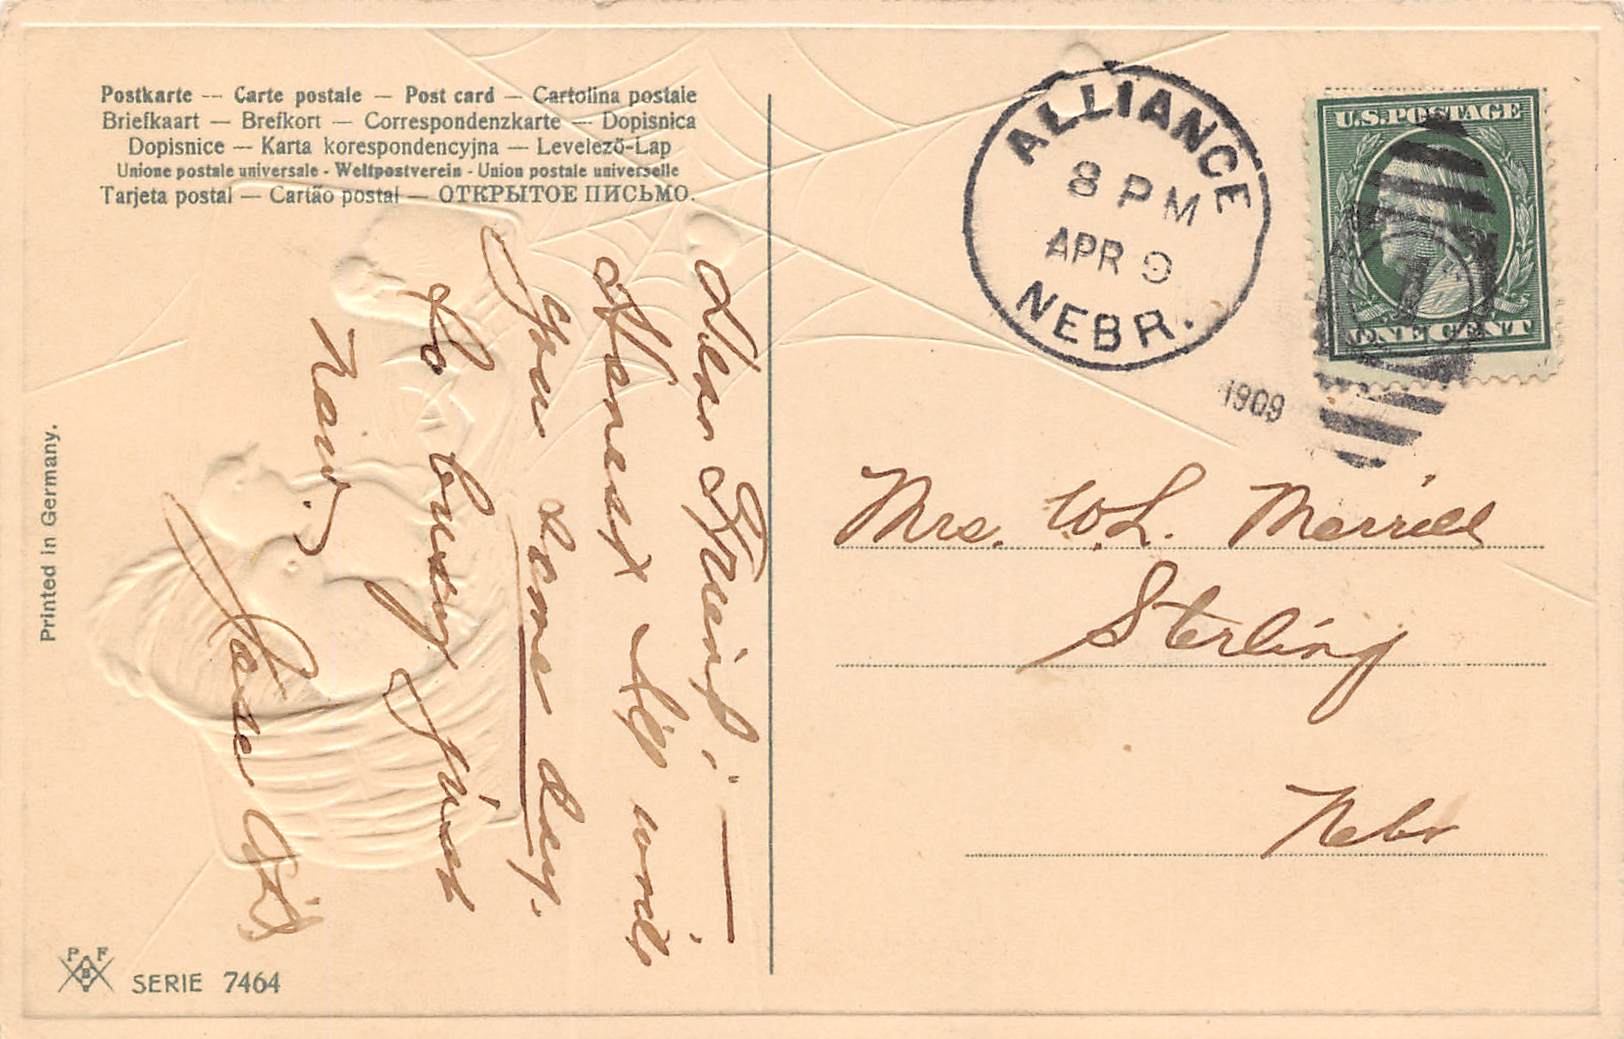 Postkarte -- Carte postale — Post card — Cartolina postale
Briefkaart — Brefkort — Correspondenzkarte — Dopisnica
Dopisnice — Karta korespondencyjna — Levelező-Lap
Unione postale universale - Weltpostverein - Union postale universelle
Tarjeta postal — Cartão postal — ОТКРЫТОЕ ПИСЬМО.
Printed in Germany.
Dear Friend; —
Honest I'll write
you some day.
So busy just
now.
P F B
SERIE 7464
ALLIANCE
8 PM
APR 9
NEBR.
1909
U.S. POSTAGE
ONE CENT
Mrs. W. L. Merrill
Sterling
Nebr